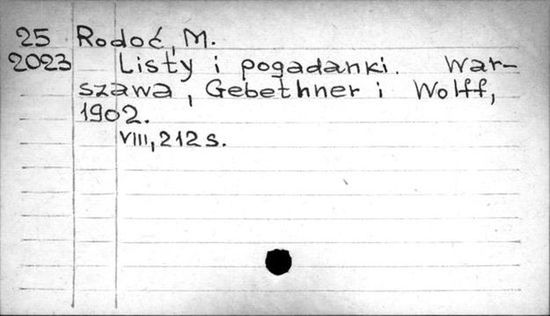 25 Rodoć, M.
2023 Listy i pogadanki. War-
szawa, Gebethner i Wolff,
1902.
VIII, 212 s.